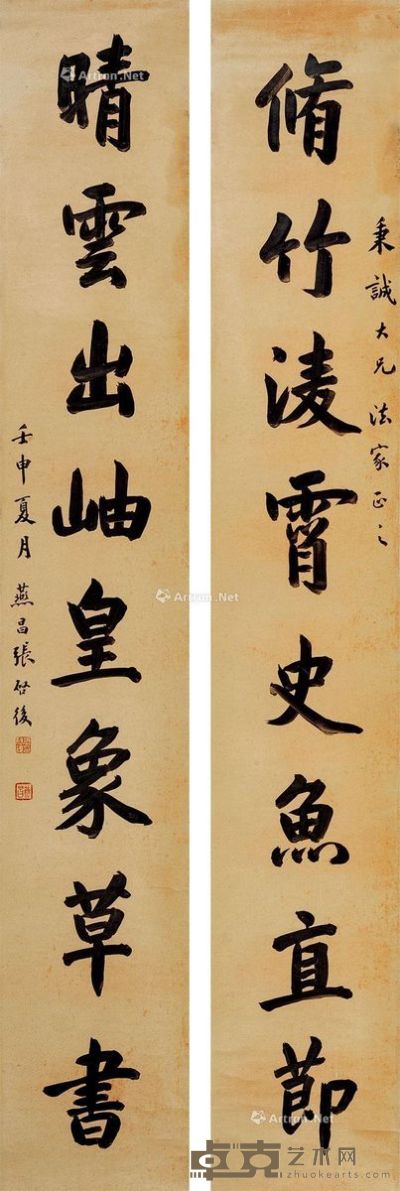 秉誠大兄法家正之
脩竹淩霄史魚直節
晴雲出岫皇象草書
壬申夏月燕昌張啓後
Artron.Net
Artron.Net
Artron.Net
卓克艺术网
www.zhuokearts.com